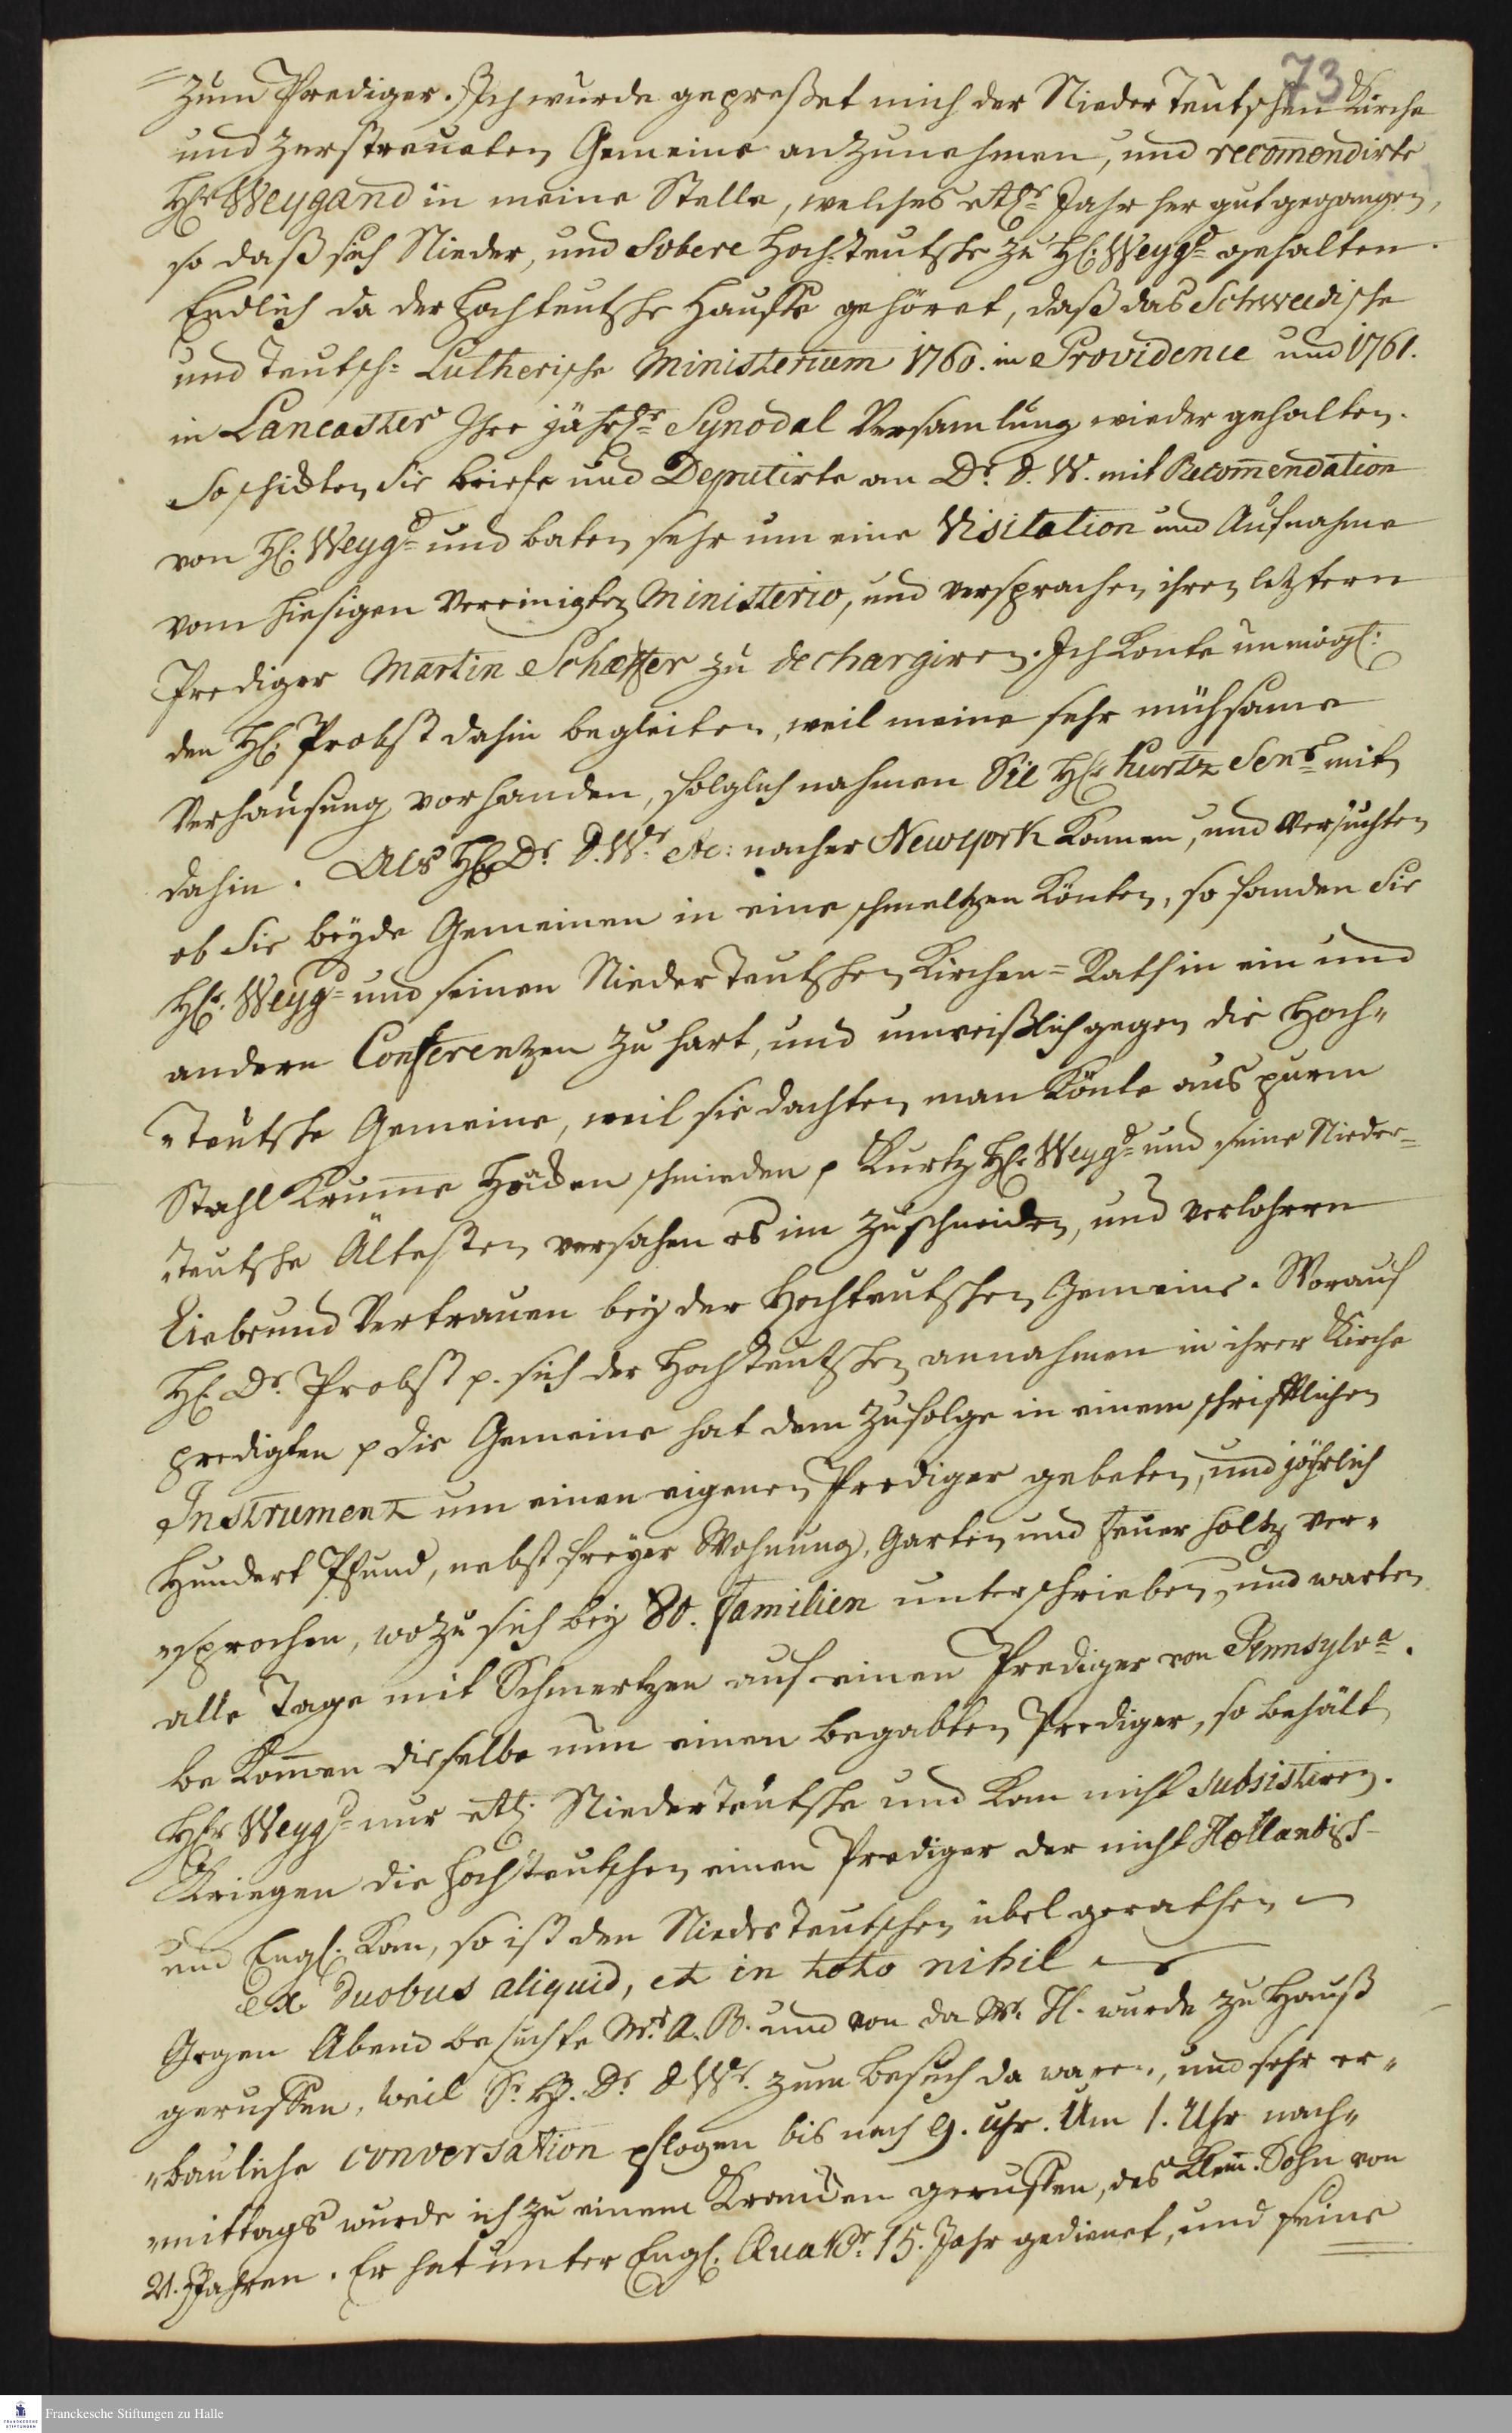 73
zum Prediger. Ich wurde gepreßet mich der Niederteutschen Kirche
und zerstreueten Gemeine anzunehmen, und recom̄endirte
H̄. Weygand in meine Stelle, welches etl. Jahr her gut gegangen,
so daß sich Nieder, und sobere Hochteutsche zu H. Weygd gehalten.
Endlich da der Hochteutsche Hauffe gehöret, daß das Schwedische
und Teutsch= Lutherische Ministerium 1760. in Providence und 1761.
in Lancaster Ihre jährl. Synodal Versamlung wieder gehalten.
So schickten Sie briefe und Deputirte an Dr. d. W. mit Recom̄endation
von H. Weygd und baten sehr um eine Visitation und Aufnahme
vom hiesigen Vereinigten Ministerio, und versprachen ihren letztern
Prediger Martin Schæffer zu dechargiren. Ich konte unmögl:
den H. Probst dahin begleiten, weil meine sehr mühsame
Verhausung vorhanden, folglich nahmen Sie H. Kurtz Senr mit
dahin. Als H. Dr. d. Wr. etc: nacher Newyork kamen, und versuchten
ob Sie beyde Gemeinen in eine schmeltzen könten, so fanden Sie
H. Weygd und seinen Niederteutschen Kirchen=Rath in ein und
andern Conferentzen zu hart, und unweißlich gegen die Hoch=
=teutsche Gemeine, weil sie dachten man könte aus purem
Stahl krum̄e Haken schmieden p Kurtz H. Weygd und seine Nieder=
teutsche Ältesten versahen es im zuschneiden, und verlohren
Liebe und Vertrauen bey der Hochteutschen Gemeine. Worauf
H. Dr. Probst p. sich der Hochteutschen annahmen in ihrer Kirche
predigten p die Gemeine hat dem zufolge in einem schrifftlichen
Instrument um einen eigenen Prediger gebeten, und jährlich
Hundert Pfund, nebst freyer Wohnung, Garten und Feuer holtz ver=
=sprochen, wozu sich bey 80. Familien unterschrieben, und warten
alle Tage mit Schmertzen auf einen Prediger von Pennsylva.
bekom̄en dieselbe nun einen begabten Prediger, so behält
H. Weygd nur etl. Niederteutsche und kan nicht subsistiren.
Kriegen die Hochteutschen einen Prediger der nicht Holländisch
und Engl. kan, so ist den Niederteutschen übel gerathen
ex duobus aliquid, et in toto nihil
Gegen Abend besuchte Mr. A. B. und von da Mr. H. wurde zu Hauß
geruffen, weil Sr. H. Dr. d Wr. zum besuch da waren, und sehr er=
=bauliche conversation pflogen bis nach 9. uhr. Um 1. Uhr nach=
=mittags wurde ich zu einem Krancken geruffen, des Klem̄. Sohn von
21. Jahren. Er hat unter Engl. Quakr. 15. Jahr gedienet, und seine
Franckesche Stiftungen zu Halle